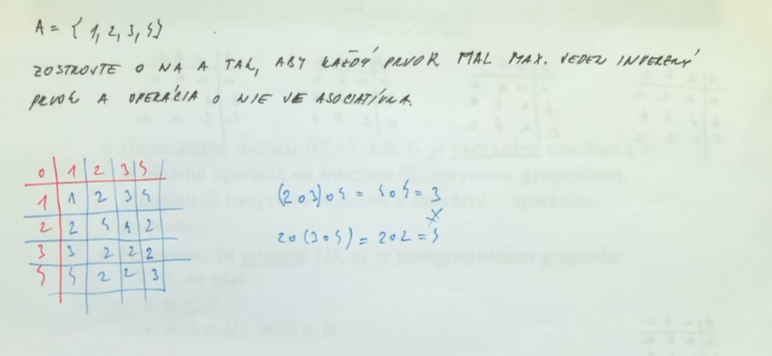 A = { 1, 2, 3, 4 }
ZOSTROJTE O NA A TAK, ABY KAŽDÝ PRVOK MAL MAX. JEDEN INVERZNÝ
PRVOK A OPERÁCIA O NIE JE ASOCIATÍVNA.
o 1 2 3 4
1 1 2 3 4
2 2 4 4 2
3 3 2 2 2
4 4 2 2 3
(2o3)o4 = 4o4 = 3
2o(3o4) = 2o2 = 4